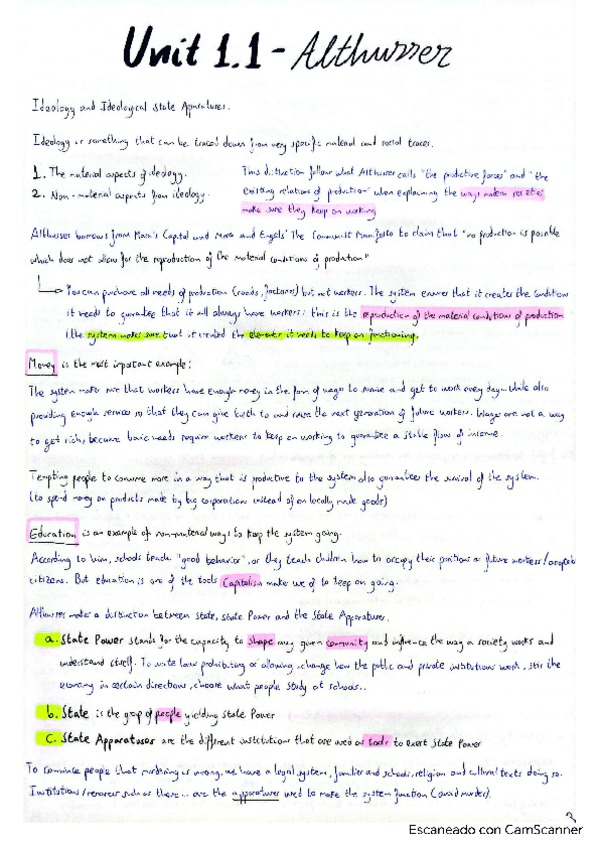 Unit 1.1 - Althusser
Ideology and Ideological State Apparatuses.
Ideology is something that can be traced down from very specific material and social traces.
1. The material aspects of ideology.
2. Non-material aspects from ideology.
This distinction follow what Althusser calls "the productive forces" and "the
existing relations of production" when explaining the ways modern societies
make sure they keep on working
Althusser borrows from Marx's Capital and Marx and Engels' The Communist Manifesto to claim that "no production is possible
which does not allow for the reproduction of the material conditions of production"
You can purchase all needs of production (roads, factories) but not workers. The system ensures that it creates the conditions
it needs to guarantee that it will always have workers: this is the reproduction of the material conditions of production
(the system makes sure that it created the elements it needs to keep on functioning.
Money is the most important example:
The system make sure that workers have enough money in the form of wages to survive and get to work every day - while also
providing enough services so that they can give birth to and raise the next generation of future workers. Wages are not a way
to get rich, because basic needs require workers to keep on working to guarantee a stable flow of income.
Tempting people to consume more in a way that is productive to the system also guarantees the survival of the system.
(to spend money on products made by big corporations instead of on locally made goods)
Education is an example of non-material ways to keep the system going.
According to him, schools teach "good behavior", or they teach children how to occupy their positions as future workers/
citizens. But education is one of the tools Capitalism make use of to keep on going.
Althusser makes a distinction between State, State Power and the State Apparatuses.
a. State Power stands for the capacity to shape any given community and influence the way a society works and
understand itself. To write laws prohibiting or allowing, change how the public and private institutions work, stir the
economy in certain directions, choose what people study at schools..
b. State is the group of people yielding State Power
c. State Apparatuses are the different institutions that are used as tools to exert State Power
To convince people that murdering is wrong, we have a legal system, families and schools, religion and cultural texts doing so.
Institutions/resources such as these... are the apparatuses used to make the system function (avoid murder).
Escaneado con CamScanner